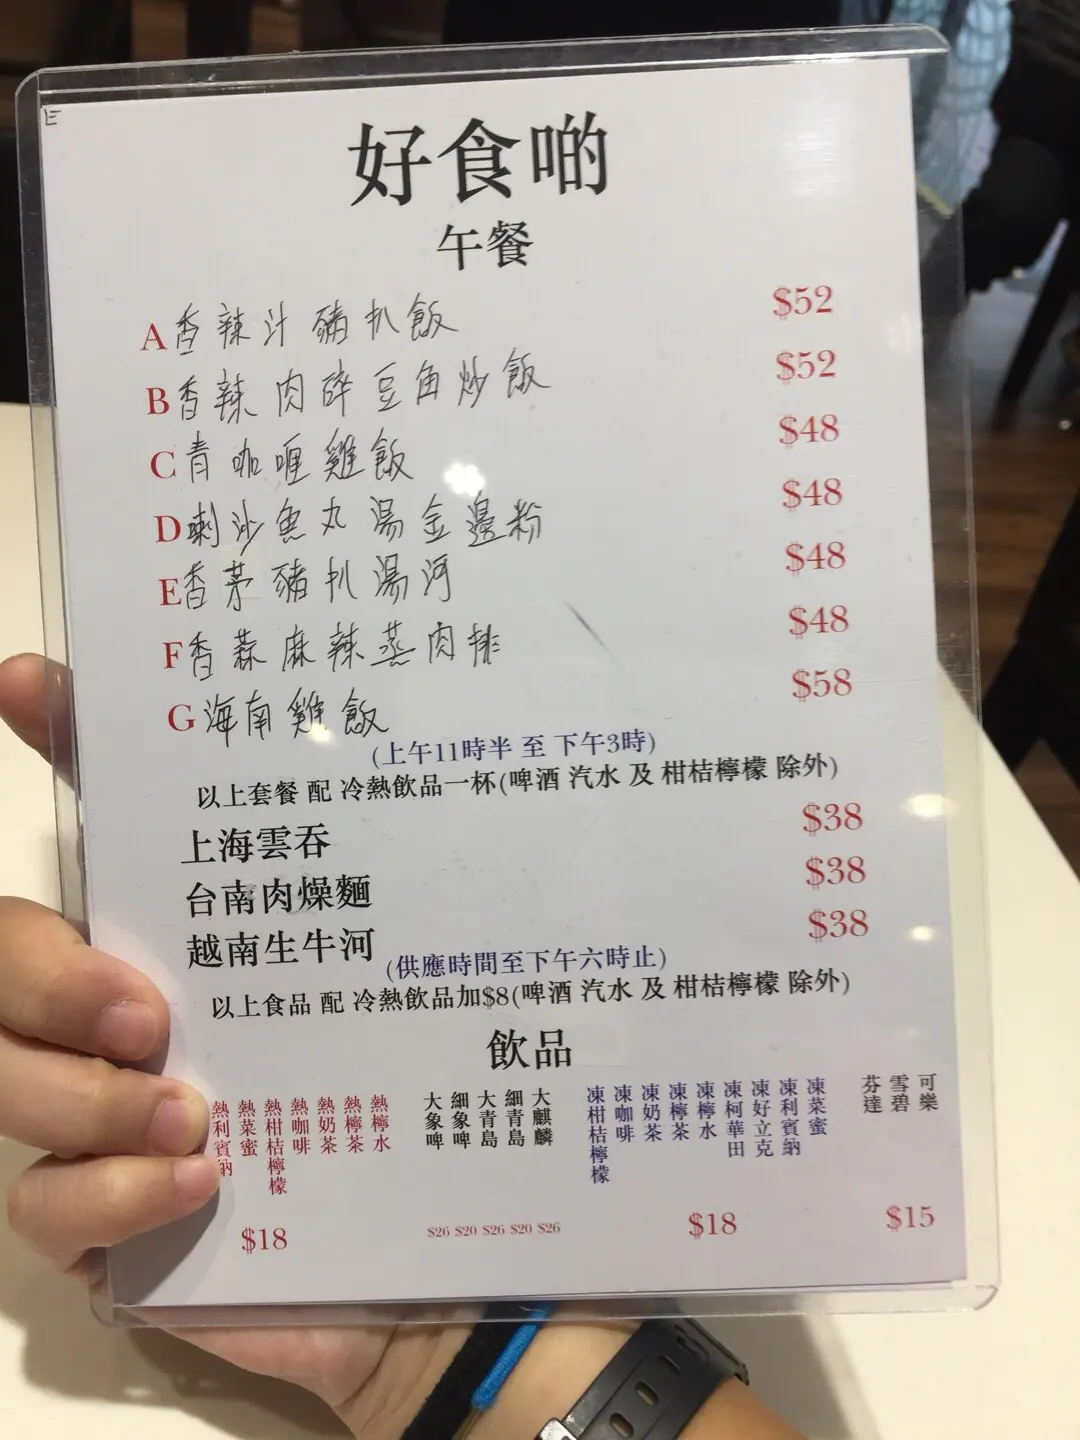 E
好食啲
午餐
A 香辣汁豬扒飯 $52
B 香辣肉碎豆角炒飯 $52
C 青咖喱雞飯 $48
D 喇沙魚丸湯金邊粉 $48
E 香茅豬扒湯河 $48
F 香蒜麻辣蒸肉排 $48
G 海南雞飯 $58
(上午11時半 至 下午3時)
以上套餐 配 冷熱飲品一杯(啤酒 汽水 及 柑桔檸檬 除外)
上海雲吞 $38
台南肉燥麵 $38
越南生牛河 $38
(供應時間至下午六時止)
以上食品 配 冷熱飲品加$8(啤酒 汽水 及 柑桔檸檬 除外)
飲品
熱利賓納
熱菜蜜
熱柑桔檸檬
熱咖啡
熱奶茶
熱檸茶
熱檸水
$18
大象啤
細象啤
大青島
細青島
大麒麟
$26 $20 $26 $20 $26
凍柑桔檸檬
凍咖啡
凍奶茶
凍檸茶
凍檸水
凍柯華田
凍好立克
凍利賓納
凍菜蜜
$18
芬達
雪碧
可樂
$15